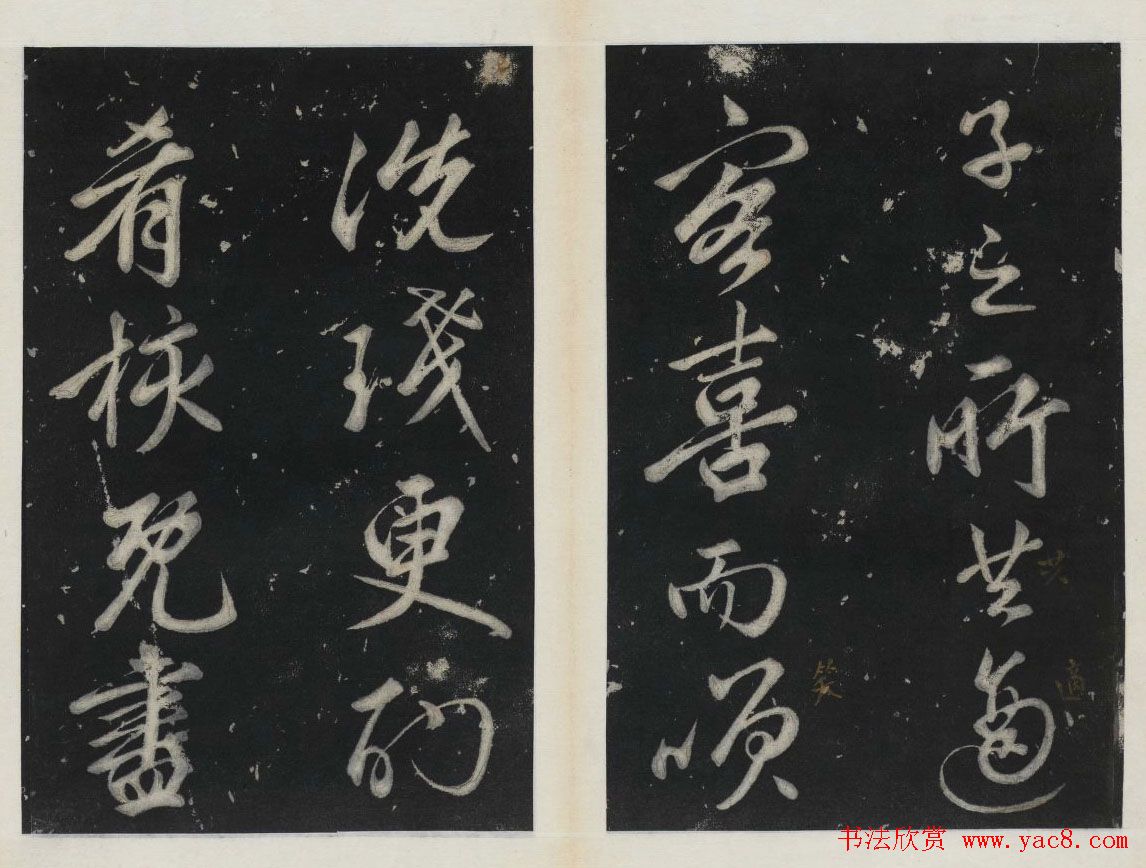 子之所共適
共
適
客喜而咲
笑
洗琖更酌
肴核既盡
书法欣赏 www.yac8.com